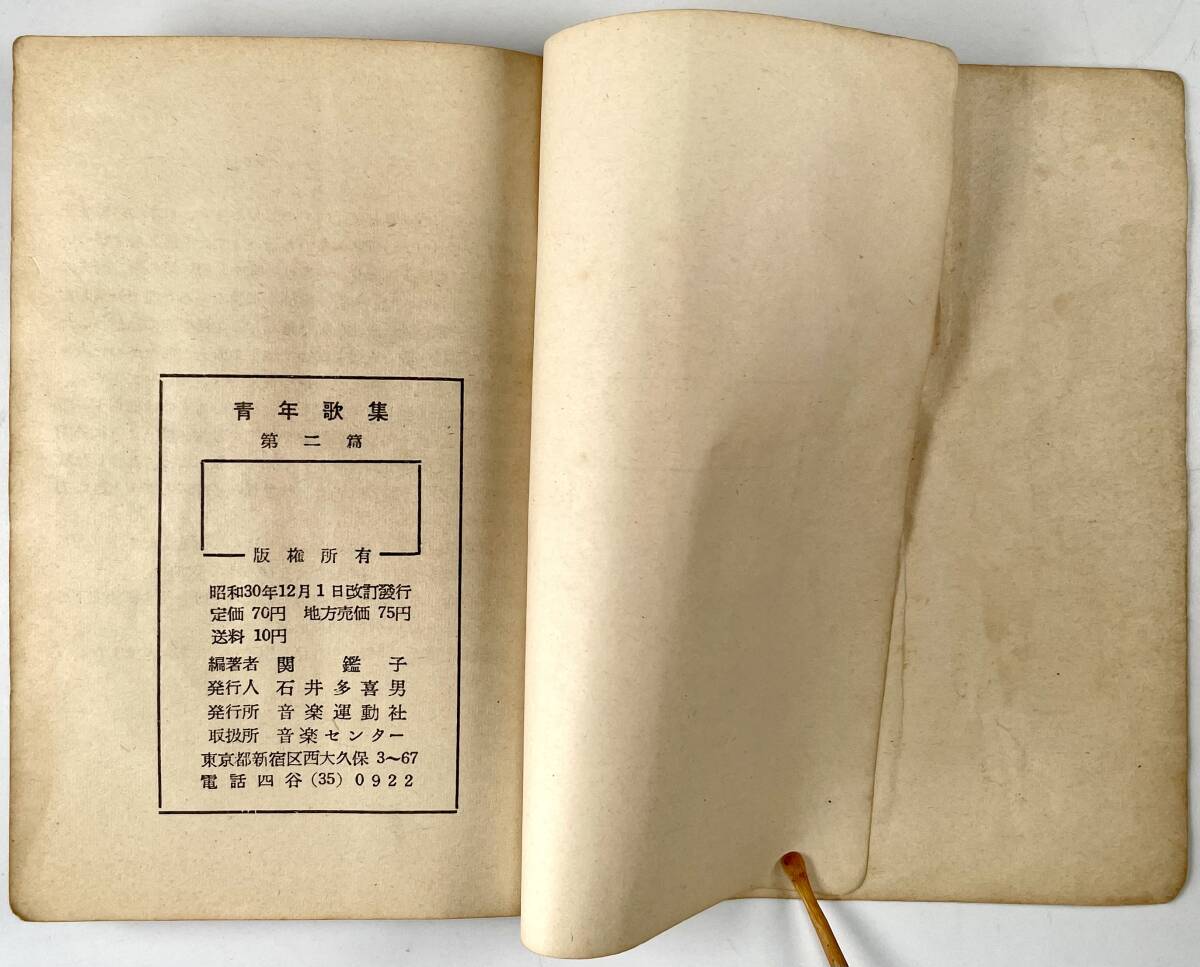 青年歌集
第二篇
版権所有
昭和30年12月1日改訂發行
定価 70円 地方売価 75円
送料 10円
編著者 関鑑子
発行人 石井多喜男
発行所 音楽運動社
取扱所 音楽センター
東京都新宿区西大久保 3〜67
電話四谷 (35) 0922